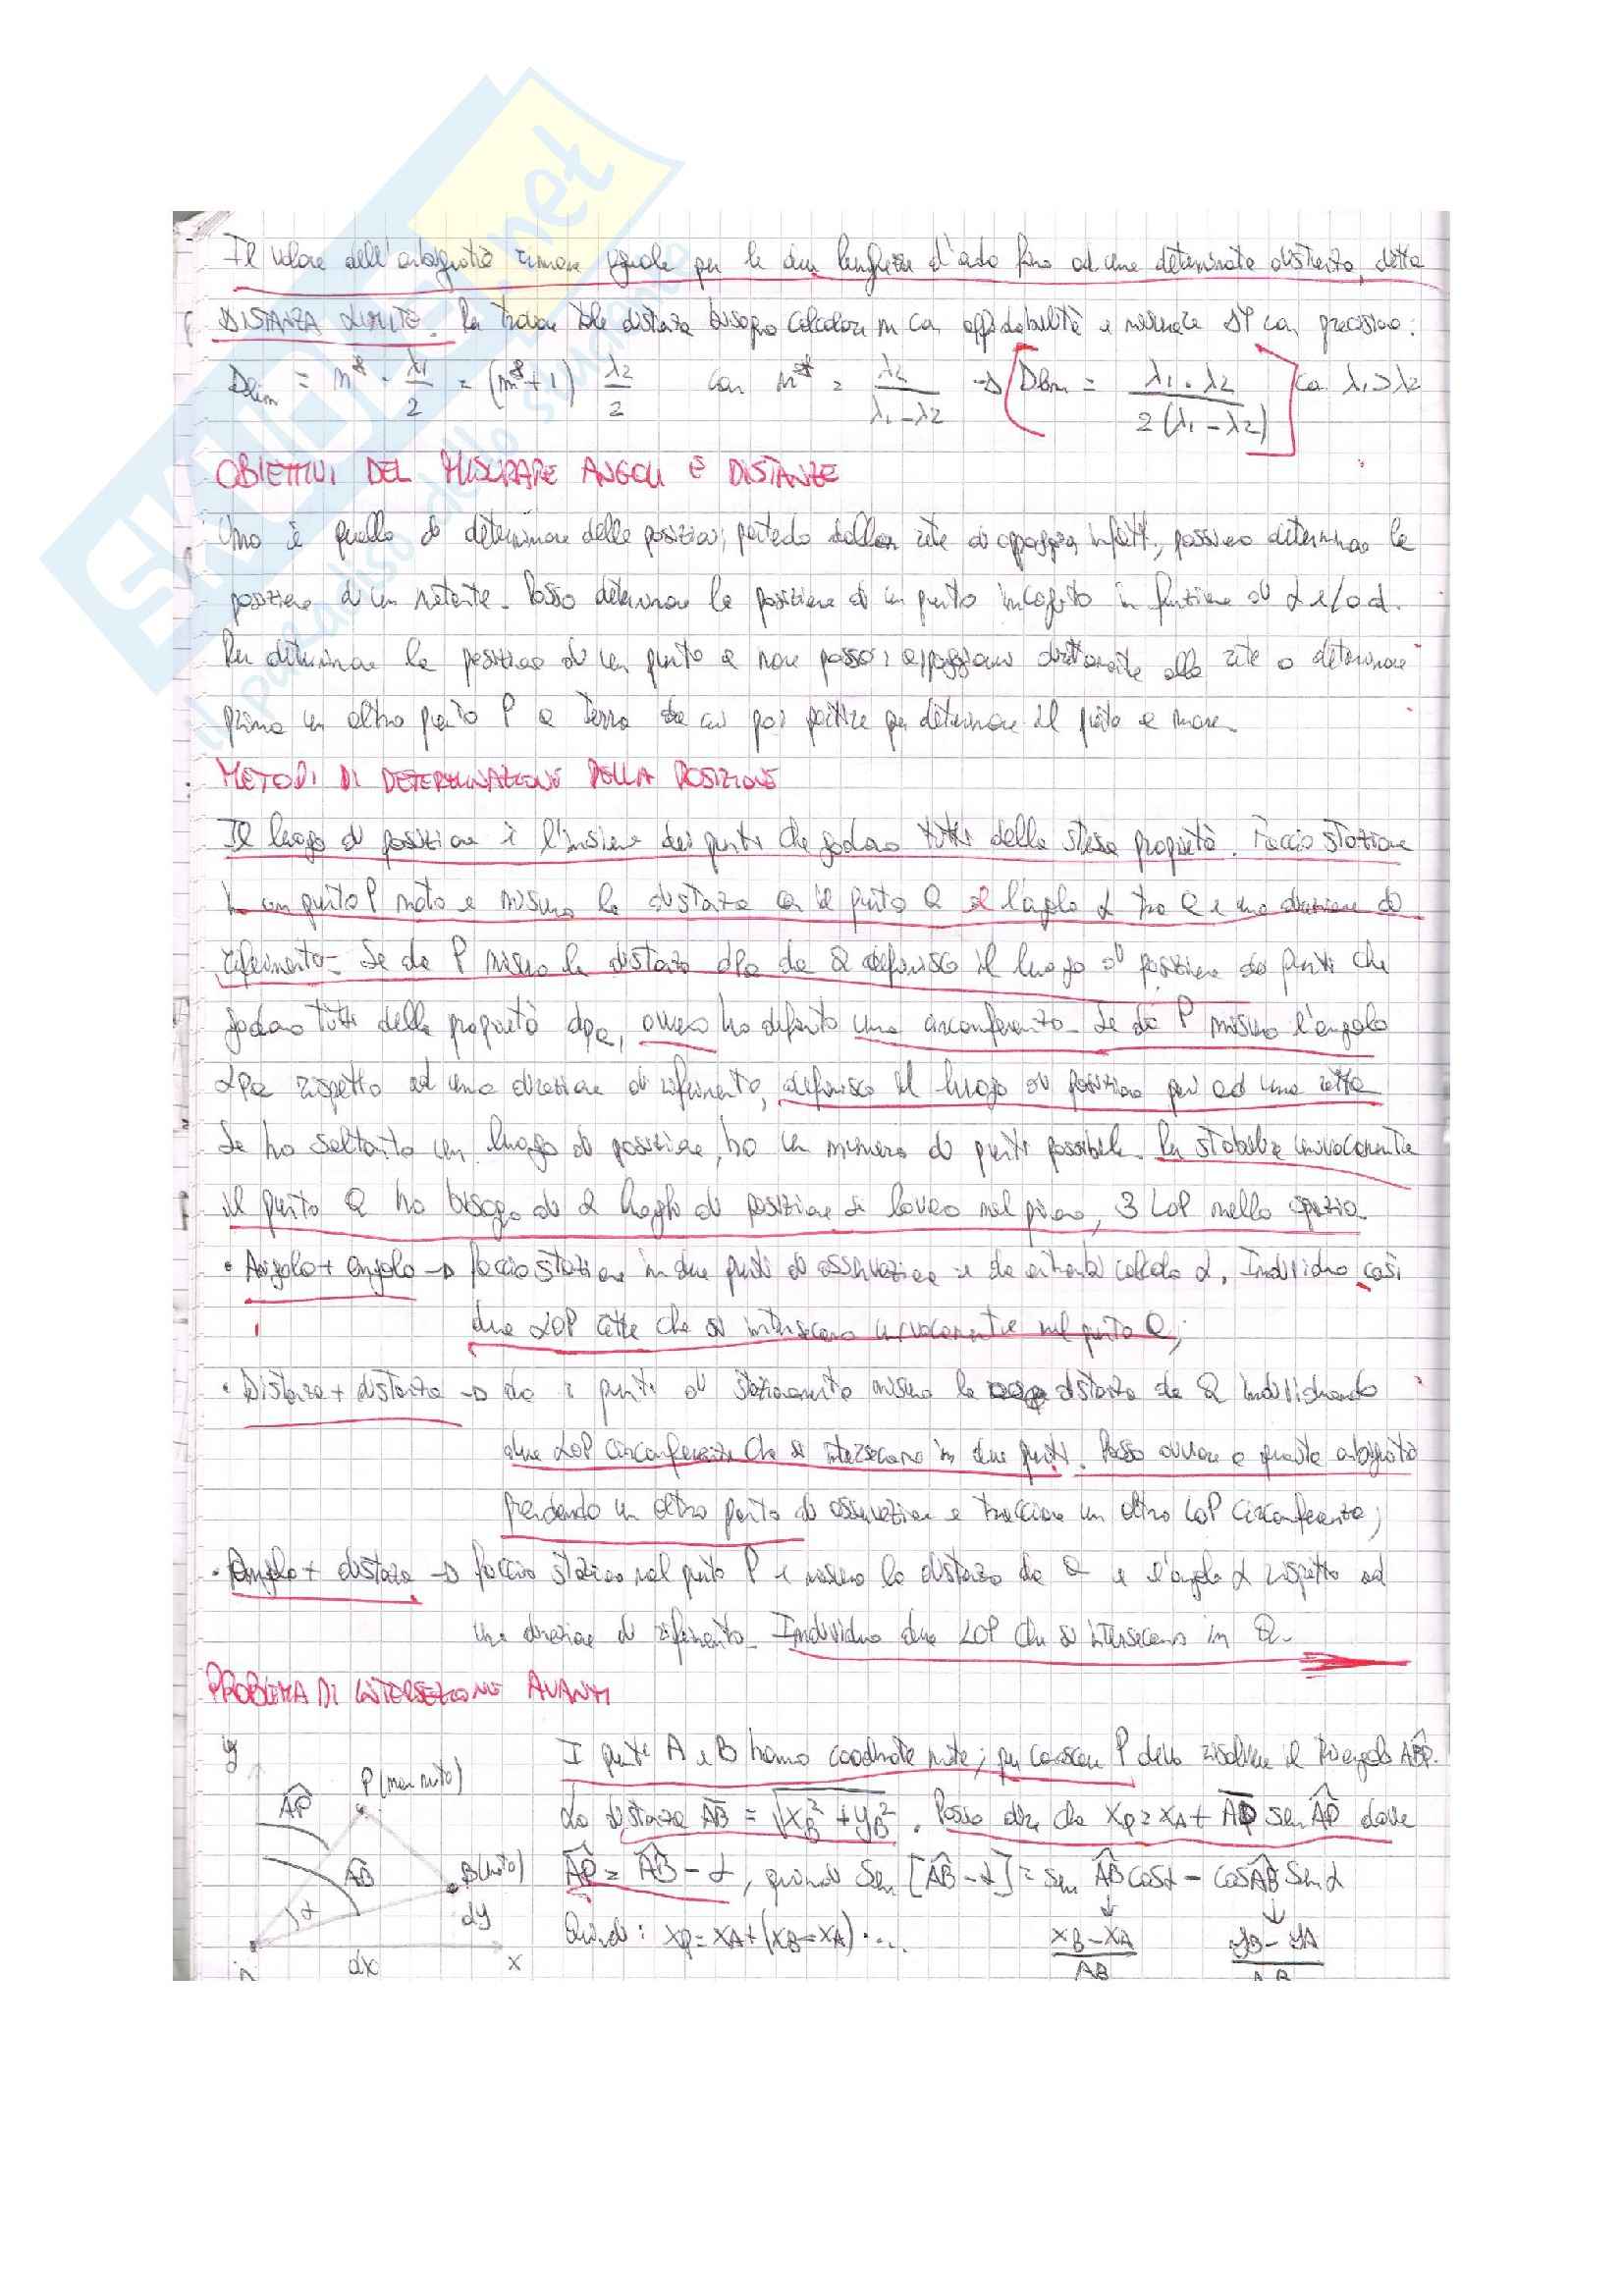 SKUOLA.net
il paradiso dello studente
Il valore dell'ambiguità rimane uguale per le due lunghezze d'onda fino ad una determinata distanza, detta
DISTANZA LIMITE. Per trovare tale distanza bisogna calcolare m con affidabilità e misurare ΔΨ con precisione:
Dlim = m* · λ1/2 = (m*+1) λ2/2 con m* = λ2/(λ1-λ2) → [Dlim = λ1·λ2/2(λ1-λ2)] con λ1>λ2
OBIETTIVI DEL MISURARE ANGOLI E DISTANZE
Uno è quello di determinare delle posizioni; partendo dalla rete di appoggio, infatti, possiamo determinare la
posizione di un natante. Posso determinare la posizione di un punto incognito in funzione di α e/o d.
Per determinare la posizione di un punto a mare posso: appoggiarmi direttamente alla rete o determinare
prima un altro punto P a terra da cui poi partire per determinare il punto a mare.
METODI DI DETERMINAZIONE DELLA POSIZIONE
Il luogo di posizione è l'insieme dei punti che godono tutti della stessa proprietà. Faccio stazione
in un punto P noto e misuro la distanza con il punto Q e l'angolo α tra Q e una direzione di
riferimento. Se da P misuro la distanza dPQ da Q definisco il luogo di posizione dei punti che
godono tutti della proprietà dPQ, ovvero ho definito una circonferenza. Se da P misuro l'angolo
αPQ rispetto ad una direzione di riferimento, definisco il luogo di posizione pari ad una retta
Se ho soltanto un luogo di posizione, ho un numero di punti possibili. Per stabilire univocamente
il punto Q ho bisogno di 2 luoghi di posizione se lavoro nel piano, 3 LOP nello spazio.
• Angolo + angolo → faccio stazione in due punti di osservazione e da entrambi calcolo α. Individuo così
due LOP rette che si intersecano univocamente nel punto Q;
• Distanza + distanza → da 2 punti di stazionamento misuro la distanza da Q individuando
due LOP circonferenze che si intersecano in due punti. Posso ovviare a questa ambiguità
prendendo un altro punto di osservazione e tracciare un altro LOP circonferenza;
• Angolo + distanza → faccio stazione nel punto P e misuro la distanza da Q e l'angolo α rispetto ad
una direzione di riferimento. Individuo due LOP che si intersecano in Q.
PROBLEMA DI INTERSEZIONE AVANTI
y
P (non noto)
AP
AB
B (noto)
α
dy
dx
x
I punti A e B hanno coordinate note; per conoscere P devo risolvere il triangolo ABP.
La distanza AB = √(XB² + yB²). Posso dire che XP = XA + AP sen AP dove
AP = AB - α, quindi sen [AB - α] = sen AB cosα - cosAB senα
Quindi: XP = XA + (XB - XA) · ...
XB - XA / AB
yB - yA / AB